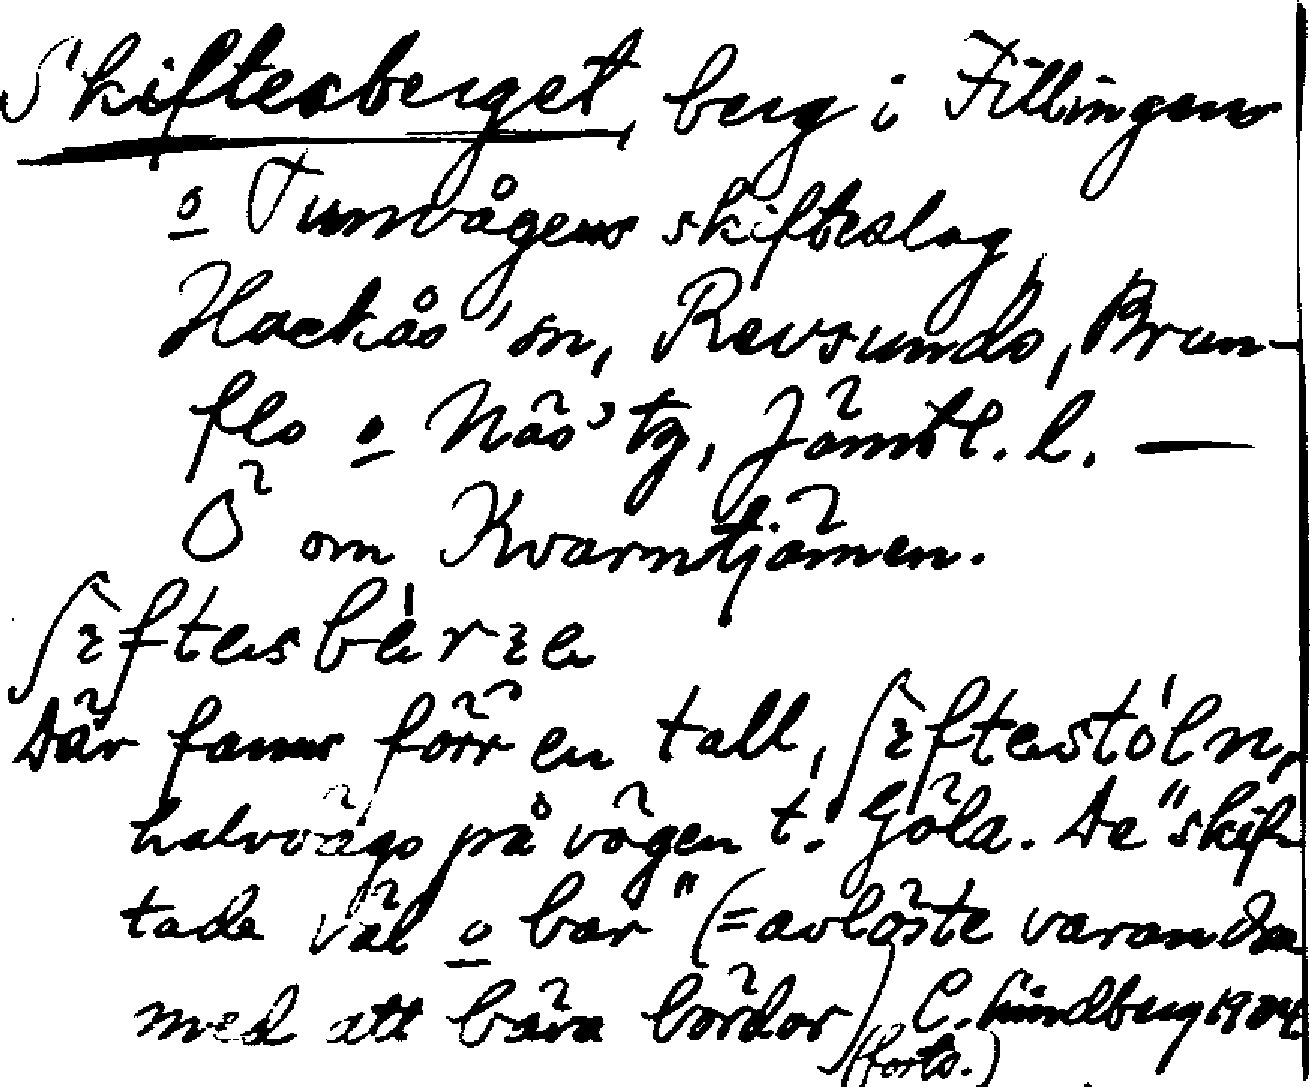 Skiftesberget, berg i Fillingens
o Tunvågens skifteslag,
Hackås' sn, Revsunds, Brun-
flo o Näs' tg, Jämtl. l. —
Ö om Kvarntjärnen.
Där fanns förr en tall,
halvvägs på vägen t. Gåla. De "skif-
tade väl o bar" (= avlöste varandra
med att bära bördor) C. Lindberg 1904
(forts.)